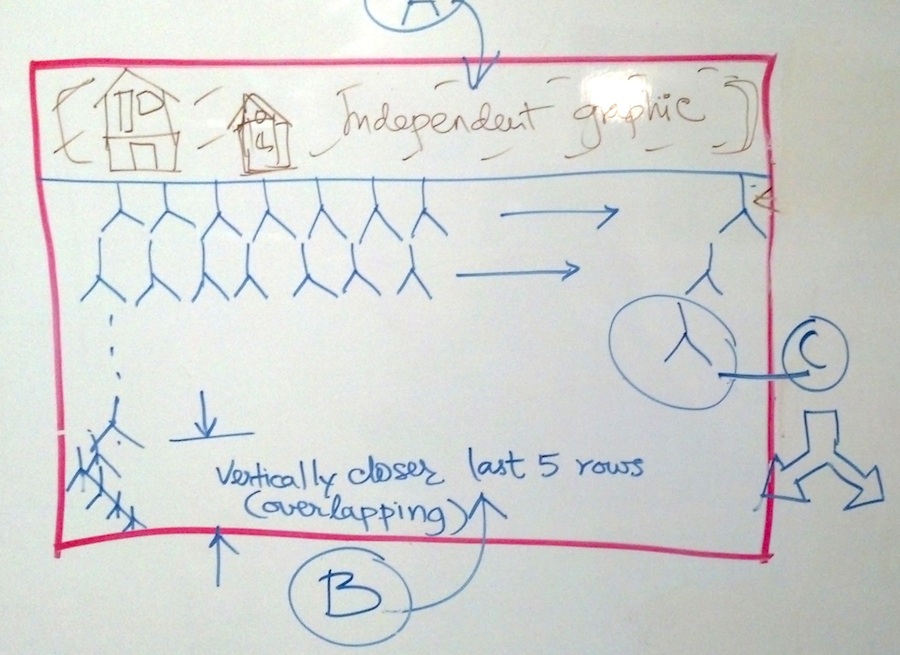 A
Independent graphic
C
Vertically closer last 5 rows
(overlapping)
B